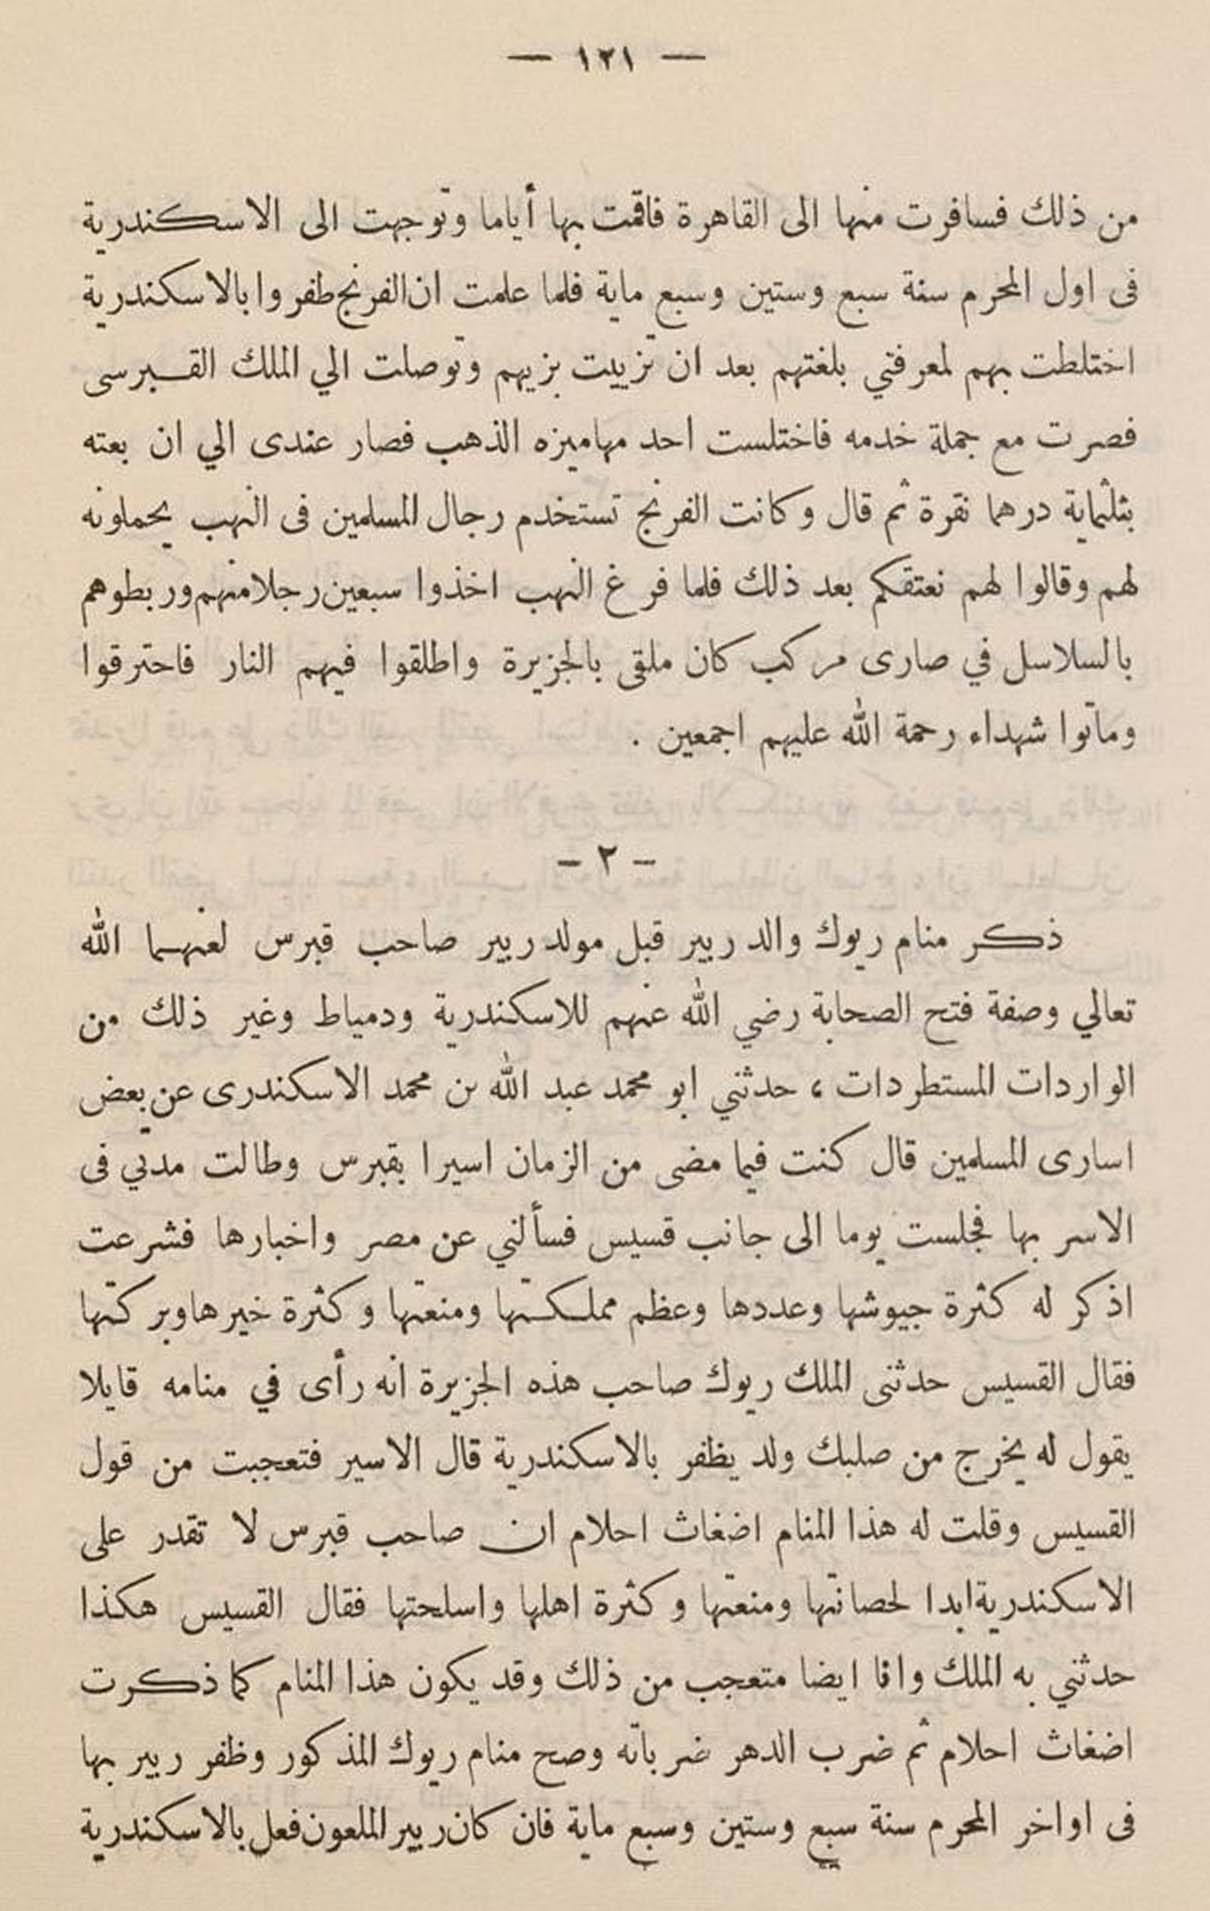 — ١٢١ —
من ذلك فسافرت منها الى القاهرة فاقمت بها أياما وتوجهت الى الاسكندرية
فى اول المحرم سنة سبع وستين وسبع ماية فلما علمت ان الفرنج ظفروا بالاسكندرية
اختلطت بهم لمعرفتي بلغتهم بعد ان تزييت بزيهم وتوصلت الي الملك القبرسى
فصرت مع جملة خدمه فاختلست احد مهاميزه الذهب فصار عندى الي ان بعته
بثلثماية درهما نقرة ثم قال وكانت الفرنج تستخدم رجال المسلمين فى النهب يحملونه
لهم وقالوا لهم نعتقكم بعد ذلك فلما فرغ النهب اخذوا سبعين رجلا منهم وربطوهم
بالسلاسل في صارى مركب كان ملقى بالجزيرة واطلقوا فيهم النار فاحترقوا
وماتوا شهداء رحمة الله عليهم اجمعين .
– ٢ –
ذكر منام ريوك والد ريير قبل مولد ريير صاحب قبرس لعنهما الله
تعالي وصفة فتح الصحابة رضي الله عنهم للاسكندرية ودمياط وغير ذلك من
الواردات المستطردات ، حدثني ابو محمد عبد الله بن محمد الاسكندرى عن بعض
اسارى المسلمين قال كنت فيما مضى من الزمان اسيرا بقبرس وطالت مدتي فى
الاسر بها فجلست يوما الى جانب قسيس فسألني عن مصر واخبارها فشرعت
اذكر له كثرة جيوشها وعددها وعظم مملكتها ومنعتها وكثرة خيرها وبركتها
فقال القسيس حدثنى الملك ريوك صاحب هذه الجزيرة انه رأى في منامه قايلا
يقول له يخرج من صلبك ولد يظفر بالاسكندرية قال الاسير فتعجبت من قول
القسيس وقلت له هذا المنام اضغاث احلام ان صاحب قبرس لا تقدر على
الاسكندرية ابدا لحصانتها ومنعتها وكثرة اهلها واسلحتها فقال القسيس هكذا
حدثني به الملك وانا ايضا متعجب من ذلك وقد يكون هذا المنام كما ذكرت
اضغاث احلام ثم ضرب الدهر ضرباته وصح منام ريوك المذكور وظفر ريير بها
فى اواخر المحرم سنة سبع وستين وسبع ماية فان كان ريير الملعون فعل بالاسكندرية